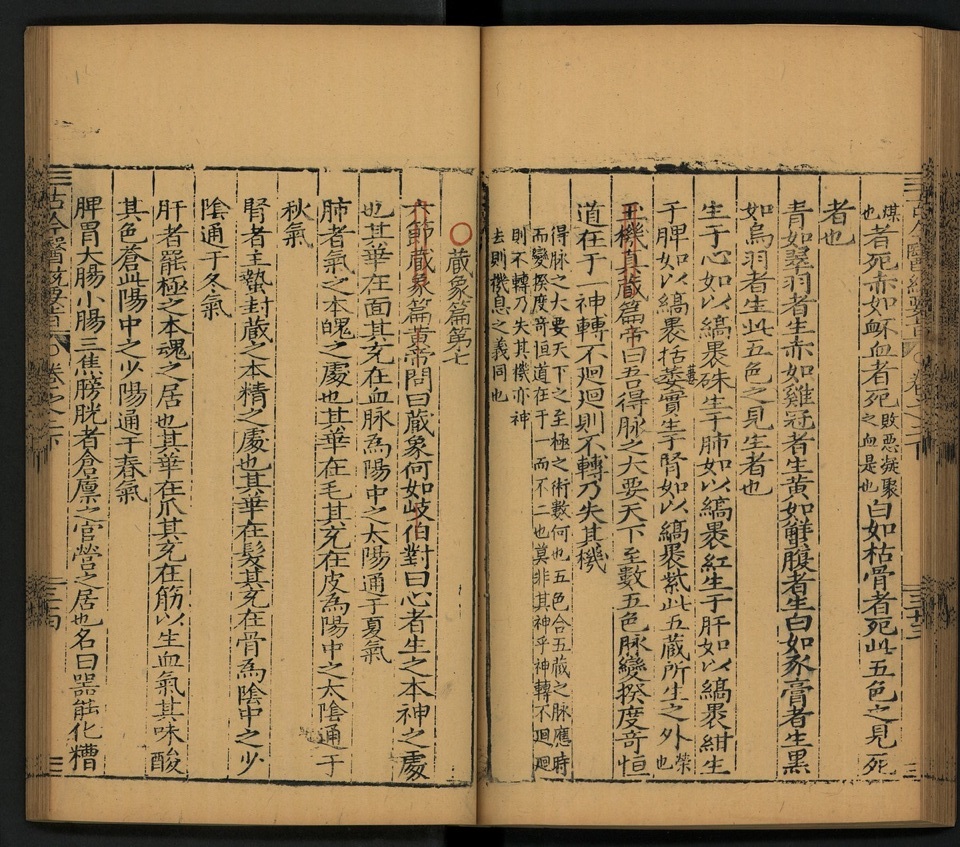 煤也者死赤如衃血者死敗惡凝聚之血是也白如枯骨者死此五色之見死
者也
青如翠羽者生赤如雞冠者生黃如蟹腹者生白如豕膏者生黑
如烏羽者生此五色之見生者也
生于心如以縞裹硃生于肺如以縞裹紅生于肝如以縞裹紺生
于脾如以縞裹括蔞實生于腎如以縞裹紫此五藏所生之外榮也
玉機真藏篇帝曰吾得脉之大要天下至數五色脉變揆度奇恒
道在于一神轉不廻廻則不轉乃失其機
得脉之大要天下之至極之術數何也五色合五藏之脉應時
而變揆度奇恒道在于一而不二也莫非其神乎神轉不廻廻
則不轉乃失其機亦神
去則機息之義同也
○藏象篇第七
六節藏象篇黃帝問曰藏象何如歧伯對曰心者生之本神之處
也其華在面其充在血脉為陽中之太陽通于夏氣
肺者氣之本魄之處也其華在毛其充在皮為陽中之太陰通于
秋氣
腎者主蟄封藏之本精之處也其華在髮其充在骨為陰中之少
陰通于冬氣
肝者罷極之本魂之居也其華在爪其充在筋以生血氣其味酸
其色蒼此陽中之少陽通于春氣
脾胃大腸小腸三焦膀胱者倉廩之官營之居也名曰器能化糟
卷之二下